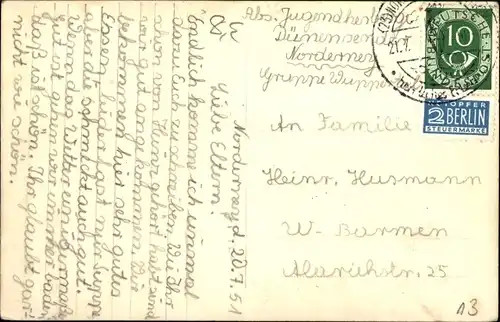 Norderney d. 20.7.51
Liebe Eltern!
Endlich komme ich einmal
dazu Euch zu schreiben. Wie Ihr
schon von Heinz gehört habt sind
wir gut angekommen. Wir
bekommen hier sehr gutes
Essen, leider fast nur Suppe
aber die schmeckt auch gut.
Wenn das Wetter
gut ist gehen wir immer baden,
daß ist schön. Ihr glaubt gar-
nicht wie schön.
Abs. Jugendherberge
Dünensend
Norderney
Gruppe Wuppert
An Familie
Heinr. Husmann
W-Barmen
Alarichstr. 25
DEUTSCHE BUNDESPOST
10
NOTOPFER
2 BERLIN
STEUERMARKE
21.7.
A3